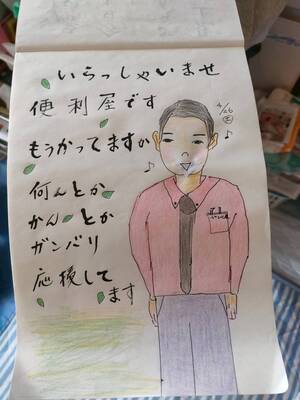 いらっしゃいませ
便利屋です
もうかってますか
何んとか
かんーとか
ガンバリ
応援して
ます
4/26